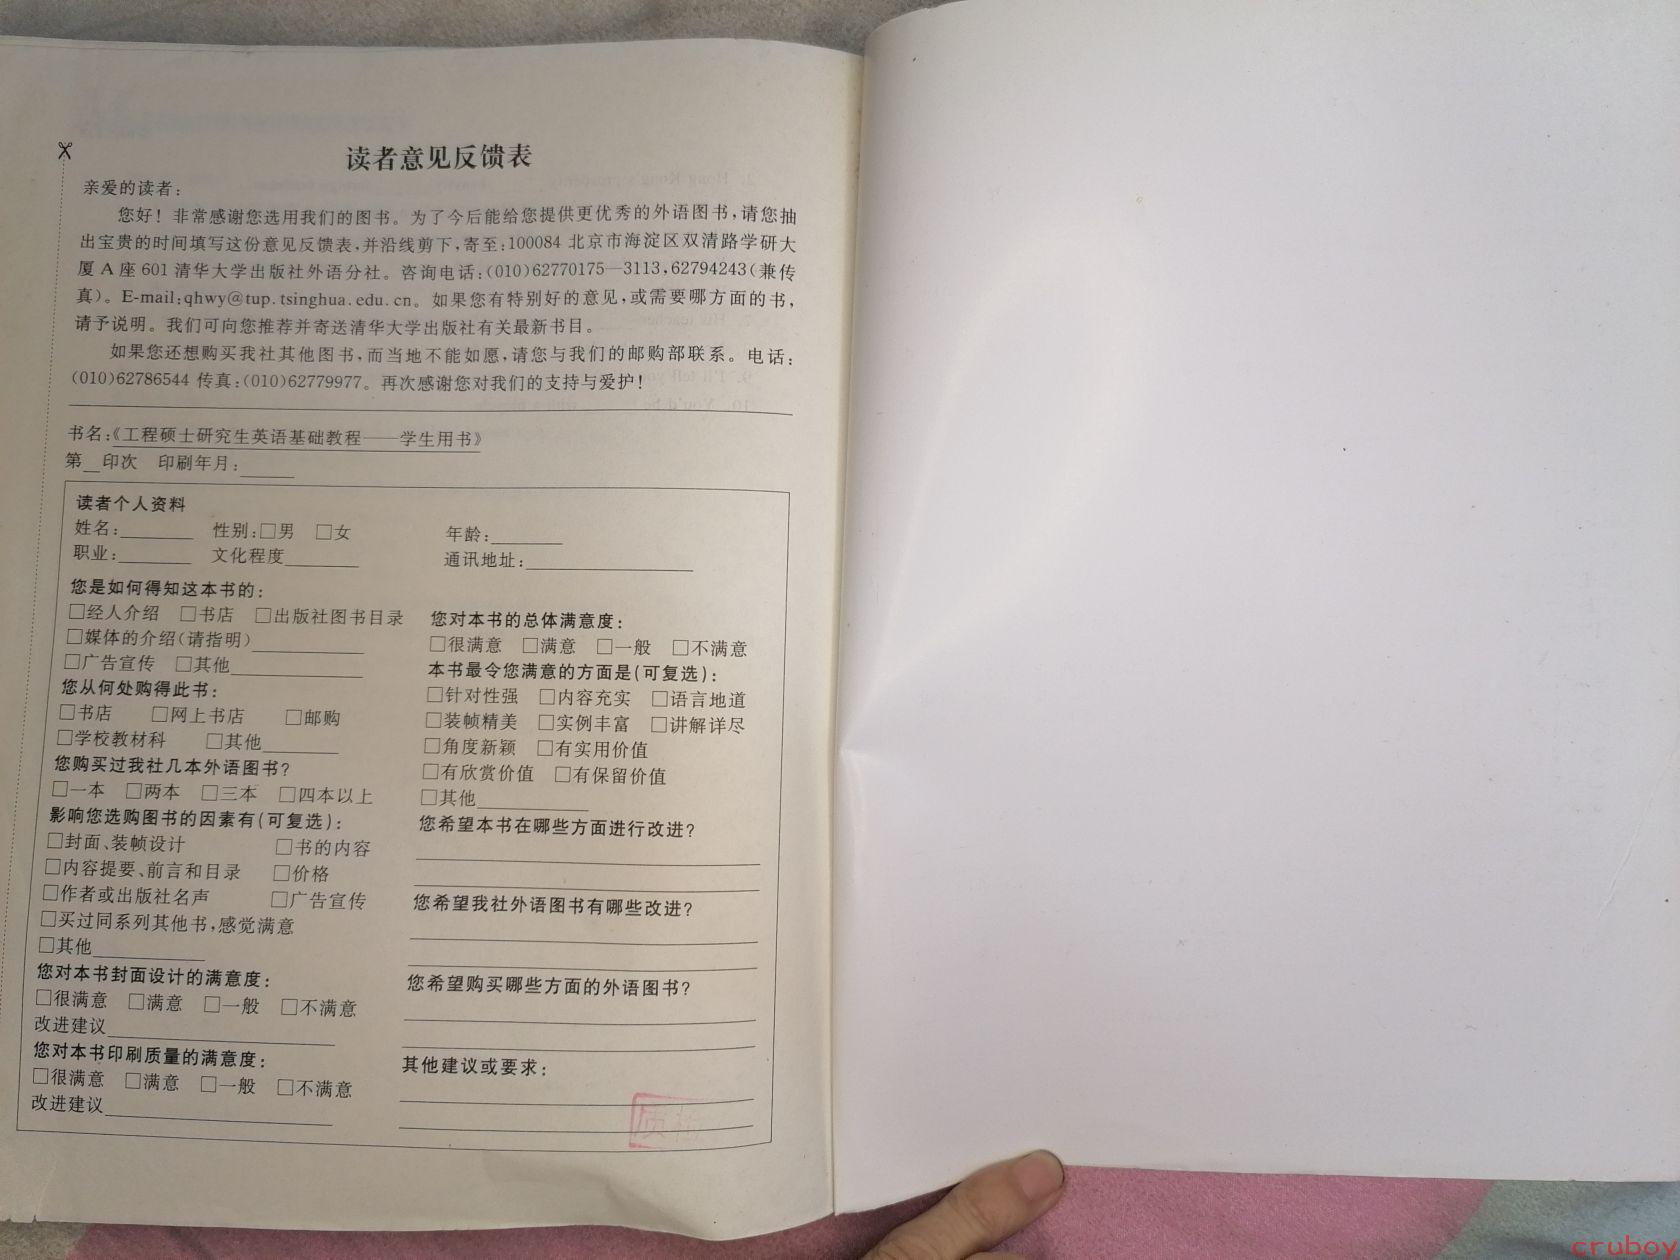 读者意见反馈表
亲爱的读者：
您好！非常感谢您选用我们的图书。为了今后能给您提供更优秀的外语图书，请您抽
出宝贵的时间填写这份意见反馈表，并沿线剪下，寄至：100084 北京市海淀区双清路学研大
厦 A 座 601 清华大学出版社外语分社。咨询电话：(010)62770175—3113，62794243（兼传
真）。E-mail:qhwy@tup.tsinghua.edu.cn。如果您有特别好的意见，或需要哪方面的书，
请予说明。我们可向您推荐并寄送清华大学出版社有关最新书目。
如果您还想购买我社其他图书，而当地不能如愿，请您与我们的邮购部联系。电话：
(010)62786544 传真：(010)62779977。再次感谢您对我们的支持与爱护！
书名：《工程硕士研究生英语基础教程——学生用书》
第__印次 印刷年月：______
读者个人资料
姓名：________ 性别：□男 □女 年龄：________
职业：________ 文化程度________ 通讯地址：________
您是如何得知这本书的：
□经人介绍 □书店 □出版社图书目录
□媒体的介绍（请指明）________
□广告宣传 □其他________
您从何处购得此书：
□书店 □网上书店 □邮购
□学校教材科 □其他________
您购买过我社几本外语图书？
□一本 □两本 □三本 □四本以上
影响您选购图书的因素有（可复选）：
□封面、装帧设计 □书的内容
□内容提要、前言和目录 □价格
□作者或出版社名声 □广告宣传
□买过同系列其他书，感觉满意
□其他________
您对本书封面设计的满意度：
□很满意 □满意 □一般 □不满意
改进建议________
您对本书印刷质量的满意度：
□很满意 □满意 □一般 □不满意
改进建议________
您对本书的总体满意度：
□很满意 □满意 □一般 □不满意
本书最令您满意的方面是（可复选）：
□针对性强 □内容充实 □语言地道
□装帧精美 □实例丰富 □讲解详尽
□角度新颖 □有实用价值
□有欣赏价值 □有保留价值
□其他________
您希望本书在哪些方面进行改进？
您希望我社外语图书有哪些改进？
您希望购买哪些方面的外语图书？
其他建议或要求：
cruboy